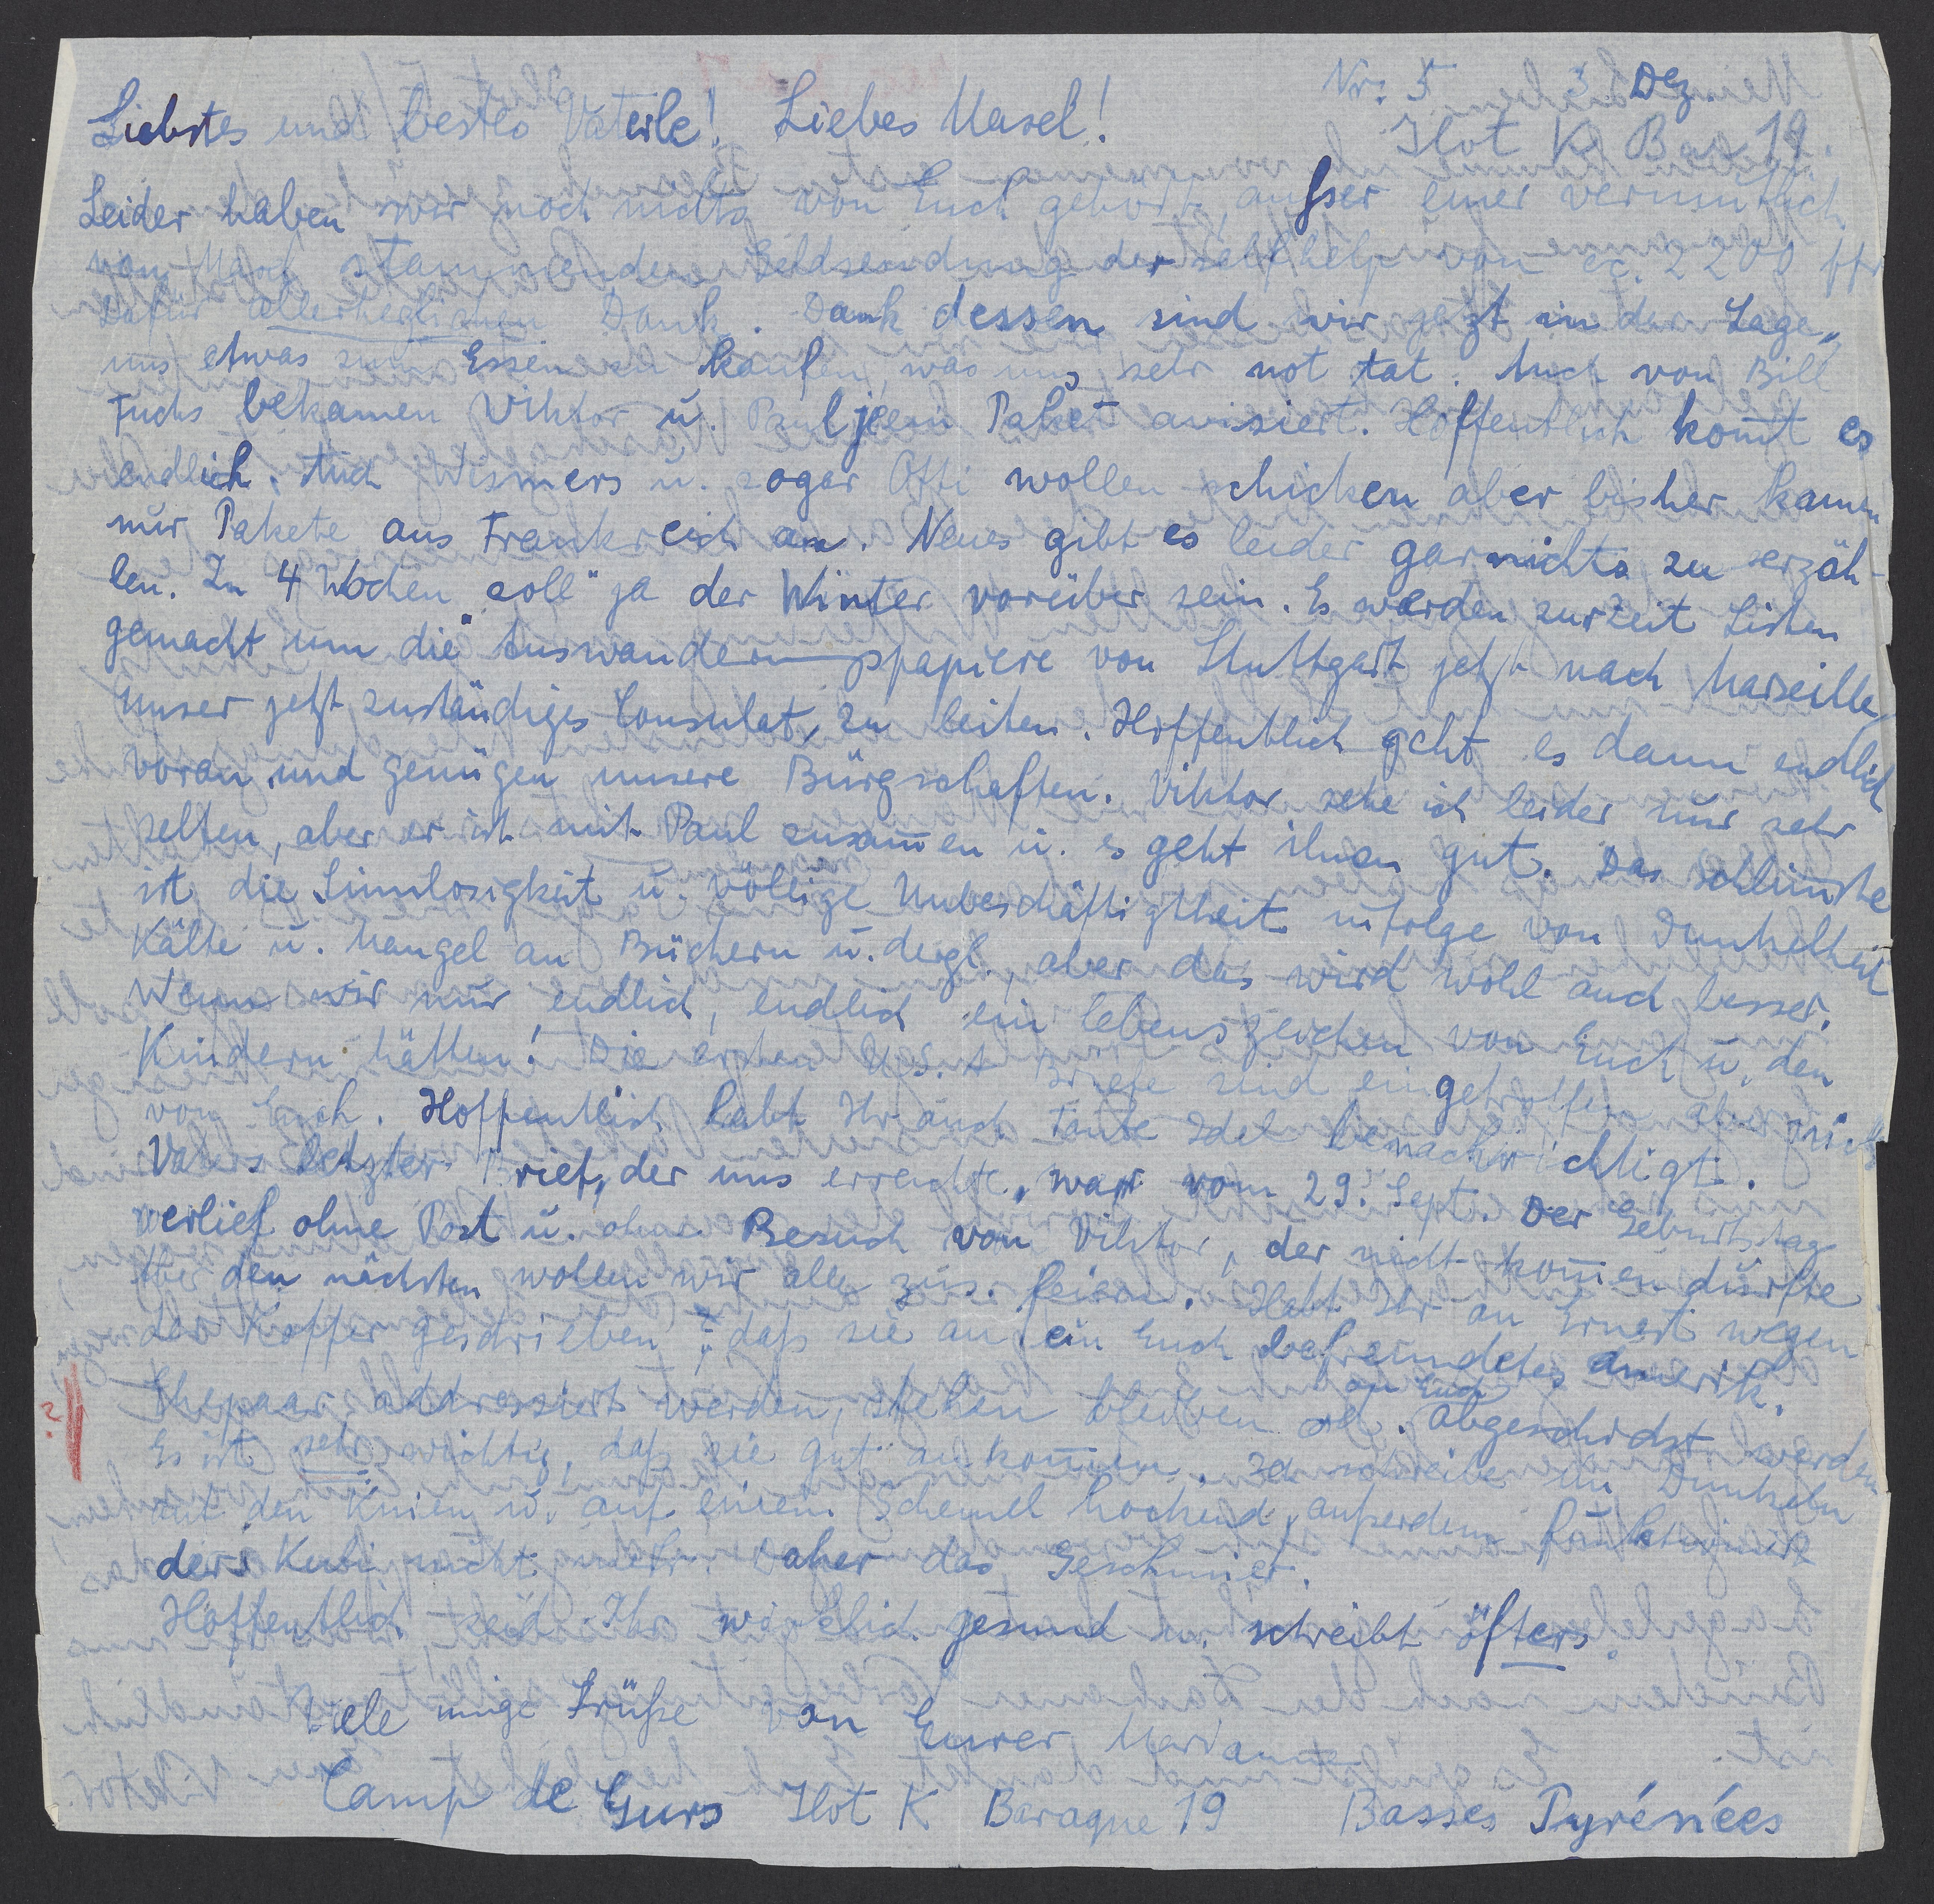 Nr. 5 3 Dez.
Liebstes und bestes Vaterle! Liebes Masel! Ilot K Bar 19.
Leider haben wir noch nichts von Euch gehört, ausser einer vermutlich
von Euch stammenden Geldsendung der selfhelp von ca. 2200 ffr
Dafür allerherzlichsten Dank. Dank dessen sind wir jetzt in der Lage,
uns etwas zum Essen zu kaufen, was uns sehr not tat. Auch von Bill
Fuchs bekamen Viktor u. Paul je ein Paket avisiert. Hoffentlich kom̄t es
endlich. Auch Wismers u. sogar Otti wollen schicken aber bisher kamen
nur Pakete aus Frankreich an. Neues gibt es leider garnichts zu erzäh-
len. In 4 Wochen "soll" ja der Winter vorüber sein. Es werden zurzeit Listen
gemacht um die Auswanderungspapiere von Stuttgart jetzt nach Marseille,
unser jetzt zuständiges Consulat, zu leiten. Hoffentlich geht es dann endlich
voran und genügen unsere Bürgschaften. Viktor sehe ich leider nur sehr
selten, aber er ist mit Paul zusam̄en u. es geht ihnen gut. Das schlimmste
ist die Sinnlosigkeit u. völlige Unbeschäftigtheit infolge von Dunkelheit
Kälte u. Mangel an Büchern u. dergl., aber das wird wohl auch besser.
Wenn wir nur endlich, endlich ein Lebenszeichen von Euch u. den
Kindern hätten! Die ersten U.S.A Briefe sind eingetroffen aber nichts
von Euch. Hoffentlich habt Ihr auch Tante Idel benachrichtigt.
Vaters letzter Brief, der uns erreichte, war vom 29. Sept. Der Geburtstag
verlief ohne Post u. ohne Besuch von Viktor, der nicht kom̄en durfte
Aber den nächsten wollen wir alle zus. feiern. Habt Ihr an Ernest wegen
der Koffer geschrieben, daß sie an ein Euch befreundetes amerik.
Ehepaar addressiert werden, stehen bleiben od. an Euch abgeschickt werden
Es ist sehr wichtig, daß sie gut ankom̄en. Ich schreibe im Dunkeln
auf den Knien u. auf einem Schemel hockend, außerdem funktioniert
der Kuli nicht mehr. Daher das Geschmier.
Hoffentlich seid Ihr wirklich gesund u. schreibt öfters.
Viele innige Grüße von Eurer Marianne
Camp de Gurs Ilot K Baraque 19 Basses Pyrénées
?